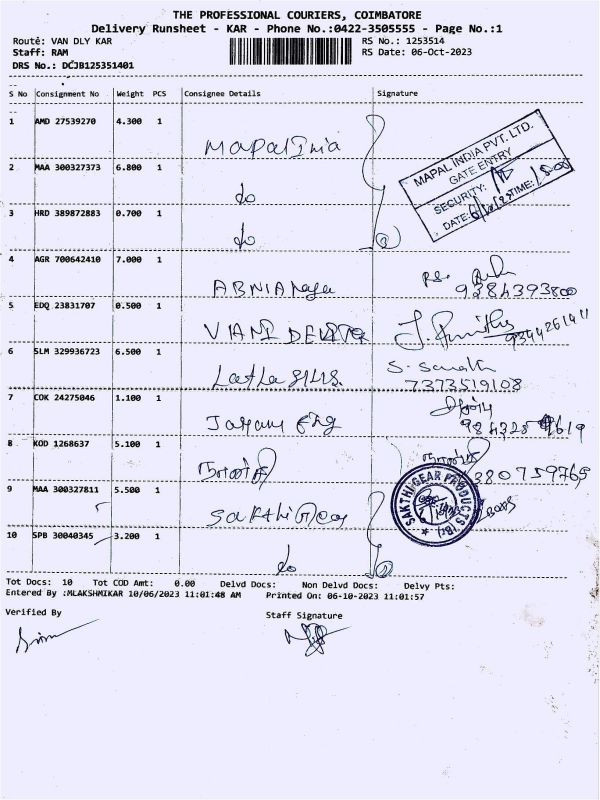 THE PROFESSIONAL COURIERS, COIMBATORE
Delivery Runsheet - KAR - Phone No.:0422-3505555 - Page No.:1
Route: VAN DLY KAR
RS No.: 1253514
Staff: RAM
RS Date: 06-Oct-2023
DRS No.: DCJB125351401
S No Consignment No Weight PCS Consignee Details Signature
1 AMD 27539270 4.300 1
Mapal India
MAPAL INDIA PVT. LTD.
GATE ENTRY
SECURITY:
DATE: TIME:
2 MAA 300327373 6.800 1
do
3 HRD 389872883 0.700 1
do
4 AGR 700642410 7.000 1
9384393800
5 EDQ 23831707 0.500 1
9344261411
6 SLM 329936723 6.500 1
7373519108
7 COK 24275046 1.100 1
8 KOD 1268637 5.100 1
9 MAA 300327811 5.500 1
SAKTHI GEAR PRODUCTS
10 SPB 30040345 3.200 1
do
Tot Docs: 10 Tot COD Amt: 0.00 Delvd Docs: Non Delvd Docs: Delvy Pts:
Entered By :MLAKSHMIKAR 10/06/2023 11:01:48 AM Printed On: 06-10-2023 11:01:57
Verified By
Staff Signature